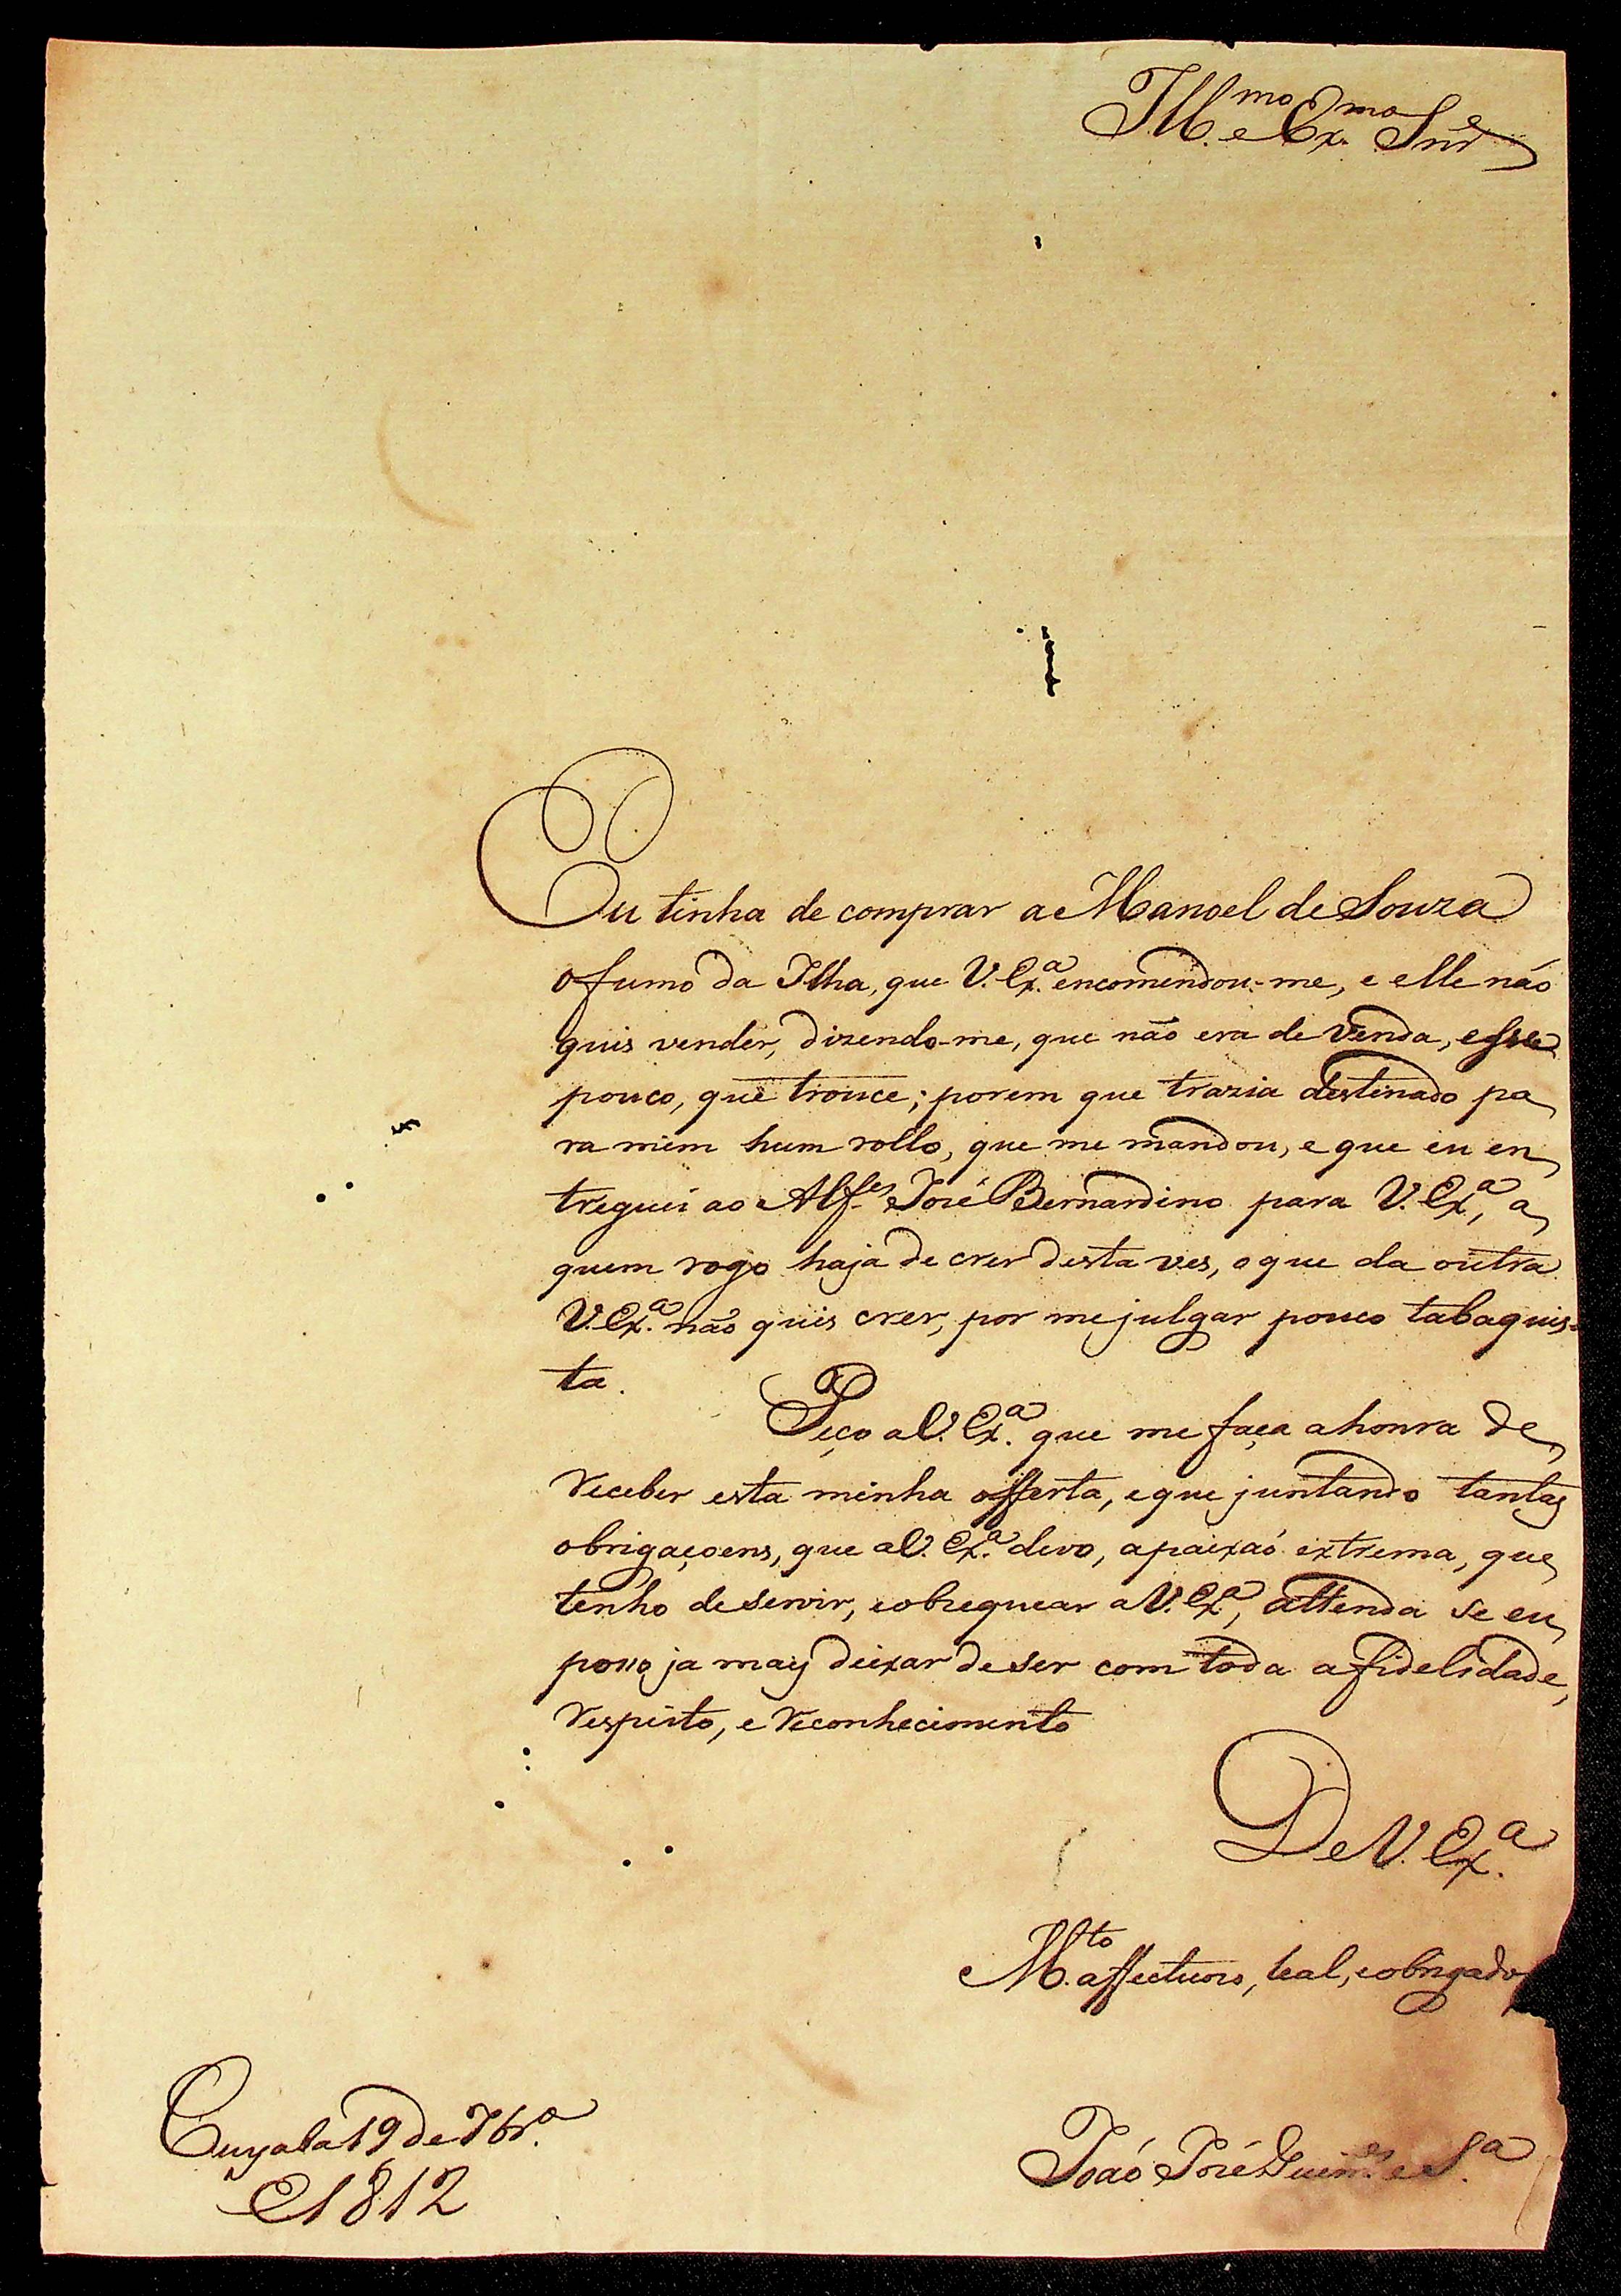 Ill.mo e Ex.mo Snr.e
Eu tinha de comprar a Manoel de Souza
o fumo da Ilha, que V. Ex.a encomendou-me, e elle não
quis vender, dizendo-me, que não era de venda, esse
pouco, que trouce; porem que trazia destinado pa
ra mim hum rollo, que me mandou, e que eu en
treguei ao Alf.es José Bernardino para V. Ex.a, a
quem rogo haja de crer desta ves, o que da outra
V. Ex.a não quis crer, por me julgar pouco tabaquis=
ta.
Peço a V. Ex.a que me faça a honra de
receber esta minha offerta, e que juntando tantas
obrigaçoens, que a V. Ex.a devo, a paixaõ extrema, que
tenho de servir, e obzequear a V. Ex.a, attenda se eu
posso ja mais deixar de ser com toda a fidelidade,
respeito, e reconhecimento
De V. Ex.a
M.to affectuozo, leal, e obrigado
Cuyaba 19 de 7br.o
de 1812
João José Guim.es e S.a